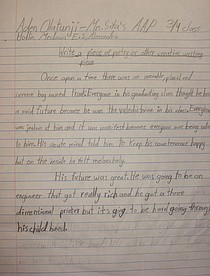 Aden Olatunji - Mr. Silva's AAP 3/4 class
Write a piece of poetry or other creative writing
piece
Once upon a time there was an
science boy named Everyone in his graduating class thought he had
a mild future because he was the valedictorian in his class Everyone
was jealous of him and it was because everyone was being
to him. His mind told him to keep his countenance happy
but on the inside he felt melancholy.
His future was great. He was going to be an
engineer that got really rich and he got a three
dimensional printer but it's gig to be hard going through
his child hood.